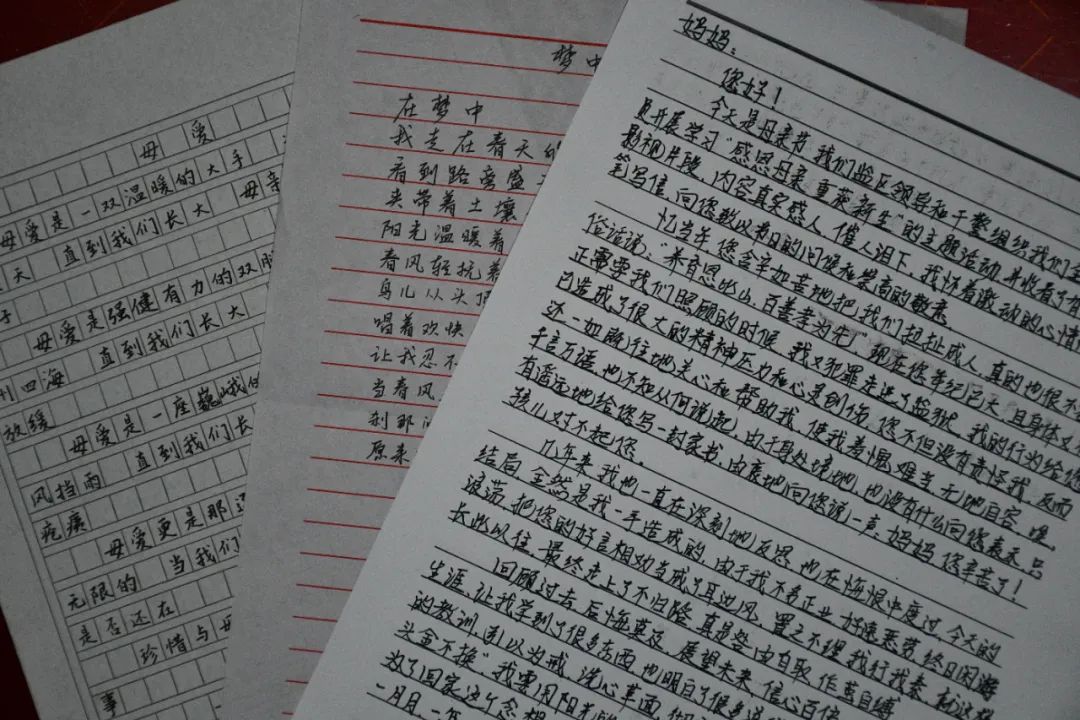 母爱
母爱是一双温暖的大手
天 直到我们长大 母亲
母爱是强健有力的双
四海 直到我们长大
放缓
母爱是一座巍峨
风挡雨 直到我们长
疙瘩
母爱更是那
无限的 当我们
是否还在
珍惜与母
事
梦中
在梦中
我走在春天的
看到路旁盛
夹带着土壤
阳光温暖着
春风轻抚着
鸟儿从头顶
唱着欢快
让我忍不
当春风
刹那间
原来
妈妈：
您好！
今天是母亲节，我们监区领导和干警组织我们全
员开展学习“感恩母亲，重获新生”的主题活动，并收看了有
影视片段，内容真实感人，催人泪下，我怀着激动的心情
笔写信，向您致以节日的问候和崇高的敬意。
忆当年，您含辛茹苦地把我们拉扯成人，真的也很不
俗话说：“养育恩比山，百善孝为先”现在您年纪已大，且身体又
正需要我们照顾的时候，我又犯罪走进了监狱，我的行为给您
已造成了很大的精神压力和心灵创伤，您不但没有责怪我，反而
还一如既往地关心和帮助我，使我羞愧难当，无地自容，
千言万语，也不知从何说起，由于身处境地，也没有什么向您表示，只
有遥远地给您写一封家书，由衷地向您说一声：妈妈，您辛苦了！
孩儿对不起您。
几年来，我也一直在深刻地反思，也在悔恨中度过，今天的
结局，全然是我一手造成的，由于我不务正业，好逸恶劳，终日闲游
浪荡，把您的好言相劝当成了耳边风，置之不理，我行我素，
长此以往，最终走上了不归路，真是咎由自取，作茧自缚。
回顾过去，后悔莫及，展望未来，信心百倍
生涯，让我学到了很多东西，也明白了很多道
的教训，引以为戒，洗心革面，
头金不换”，我要用阳光
为了回家这个念想
一月月，一年